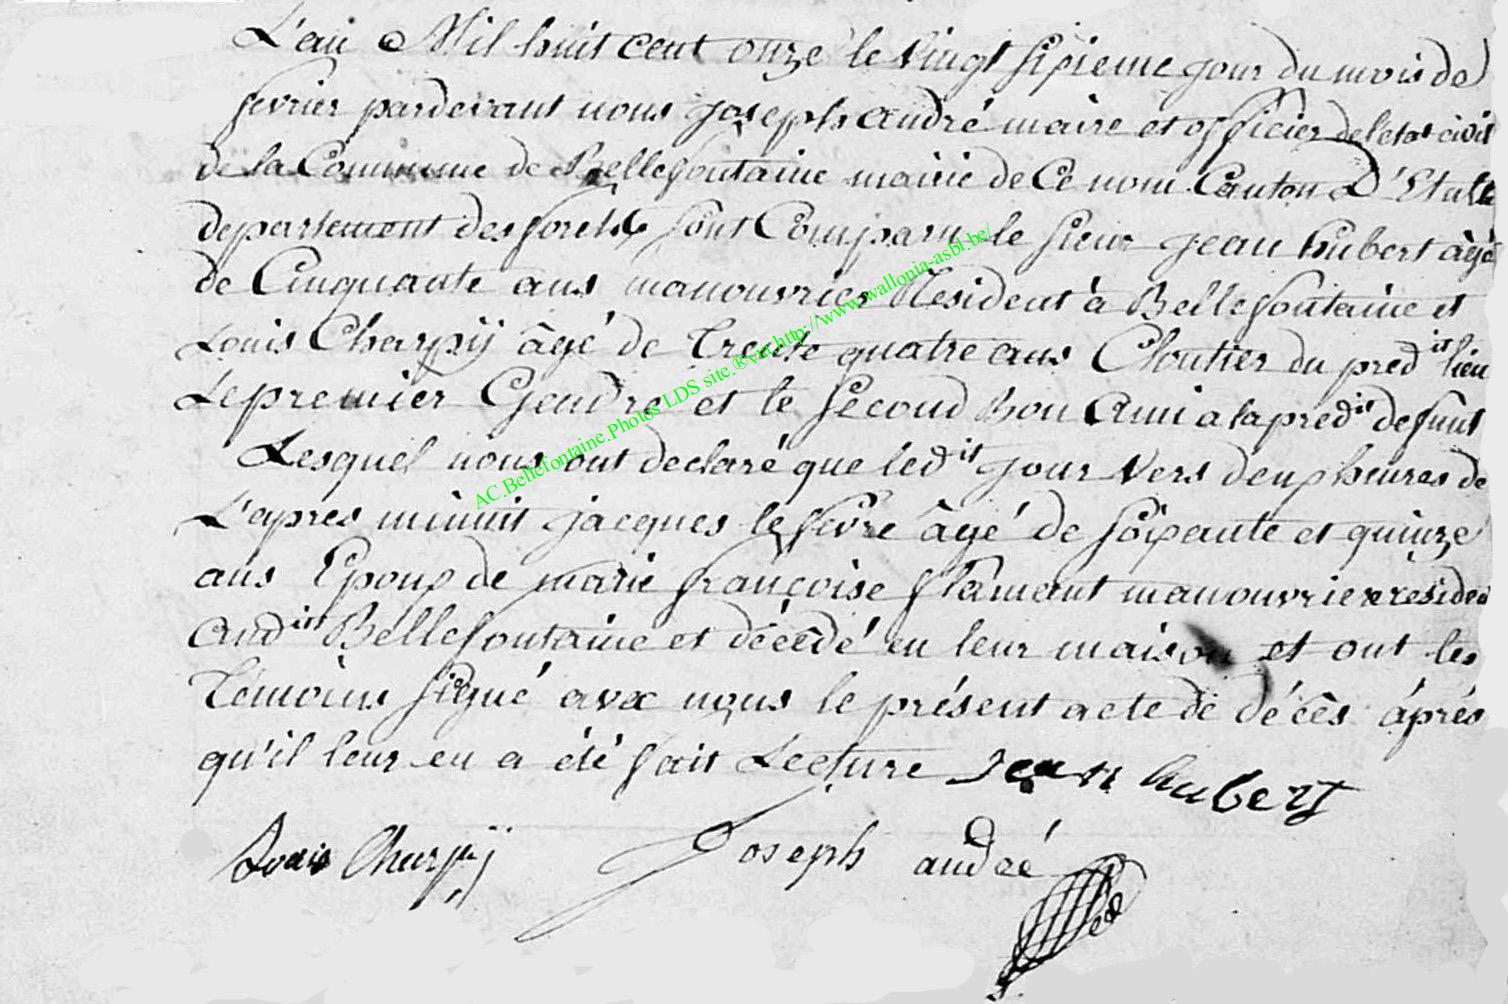 L'an Mil huit cent onze le vingt sixieme jour du mois de
fevrier pardevant nous joseph andré maire et officier de letat civil
de la Commune de Bellefontaine mairie de Ce nom Canton D'Etalle
departement des forets sont Comparu le sieur jean hubert âgé
de Cinquante ans manouvrier Résident à Bellefontaine et
Louis Charpij âgé de Trente quatre ans Cloutier du predit lieu
Le premier Gendre et le second Bon Ami a la predit defunt
Lesquel nous ont declaré que ledit jour vers deux heures de
L'apres minuit jacques lefevre âgé de soixante et quinze
ans Epoux de marie françoise flament manouvrier
Audit Bellefontaine et décédé en leur maison et ont les
Témoins signé avec nous le présent acte de décès áprés
qu'il leur en a été fait Lecture Jean hubert
Louis Charpij Joseph andré
AC.Bellefontaine.Photos LDS site.®via http://www.wallonia-asbl.be/